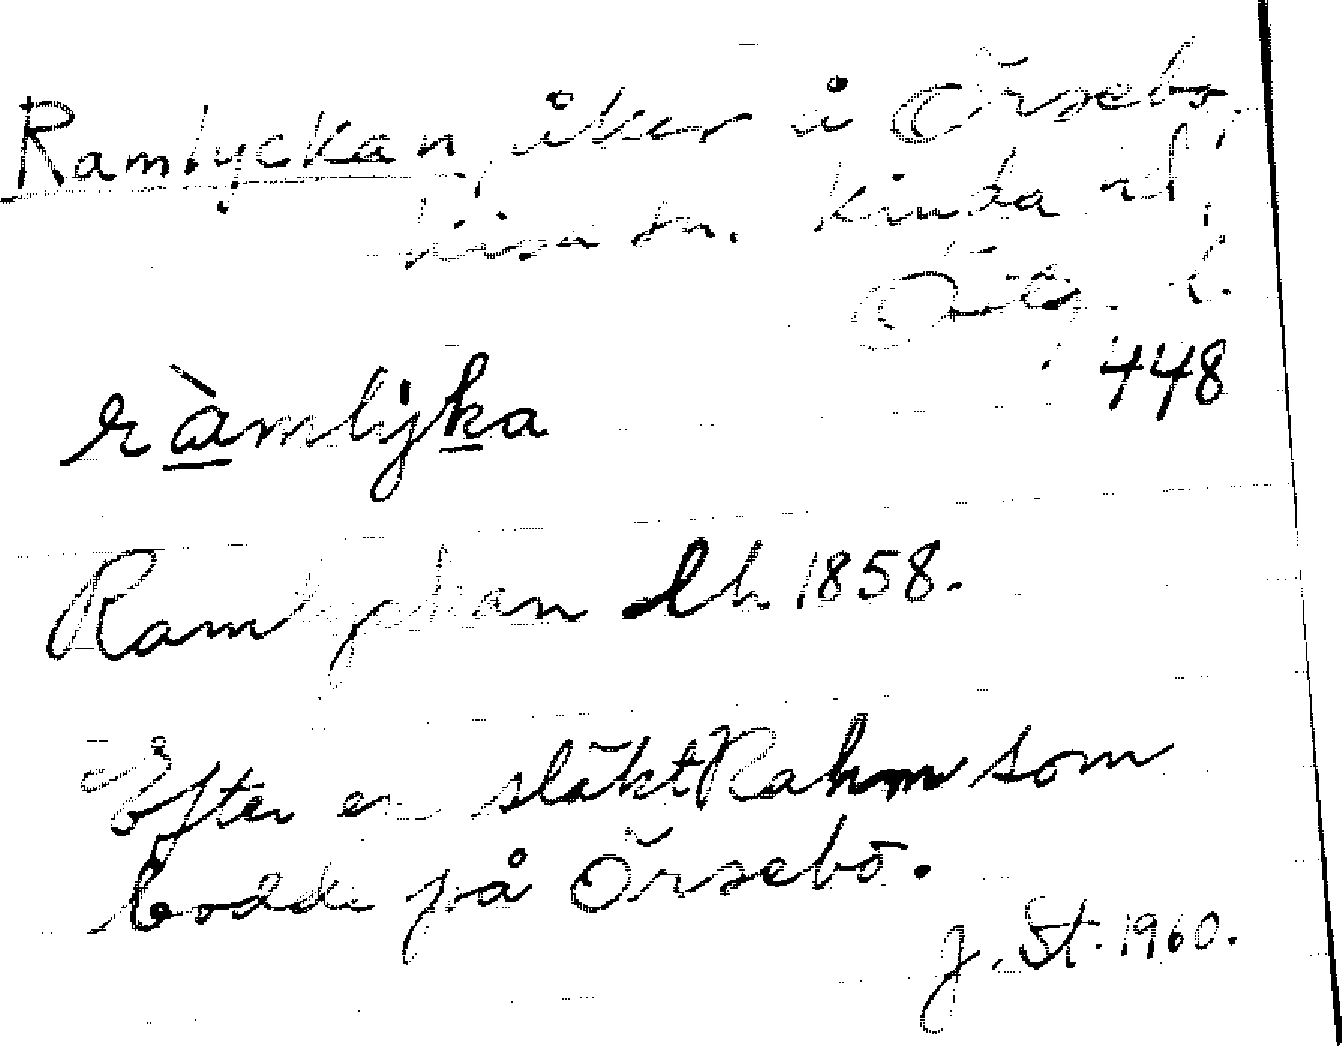 Ramlyckan, åker å Örsebo,
Kisa sn. Kinda hd,
Östg. l.
448
ràmlyka
Ramlyckan lh. 1858.
Efter en släkt Rahm som
bodde på Örsebo.
J. St. 1960.